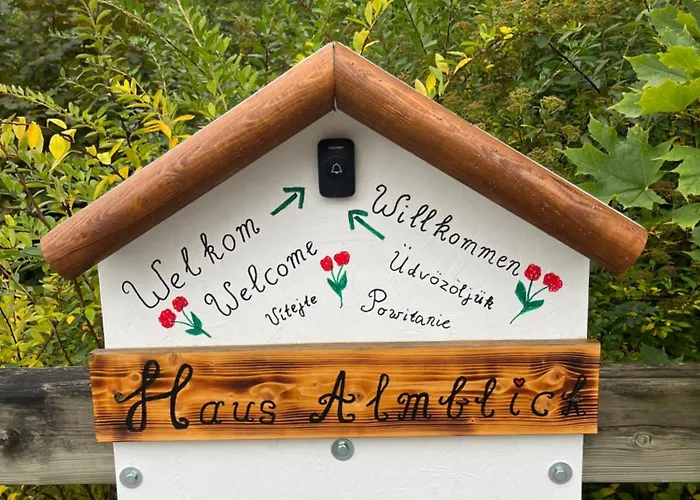 Welkom
Willkommen
Welcome
Üdvözöljük
Vitejte
Powitanie
Haus Almblick